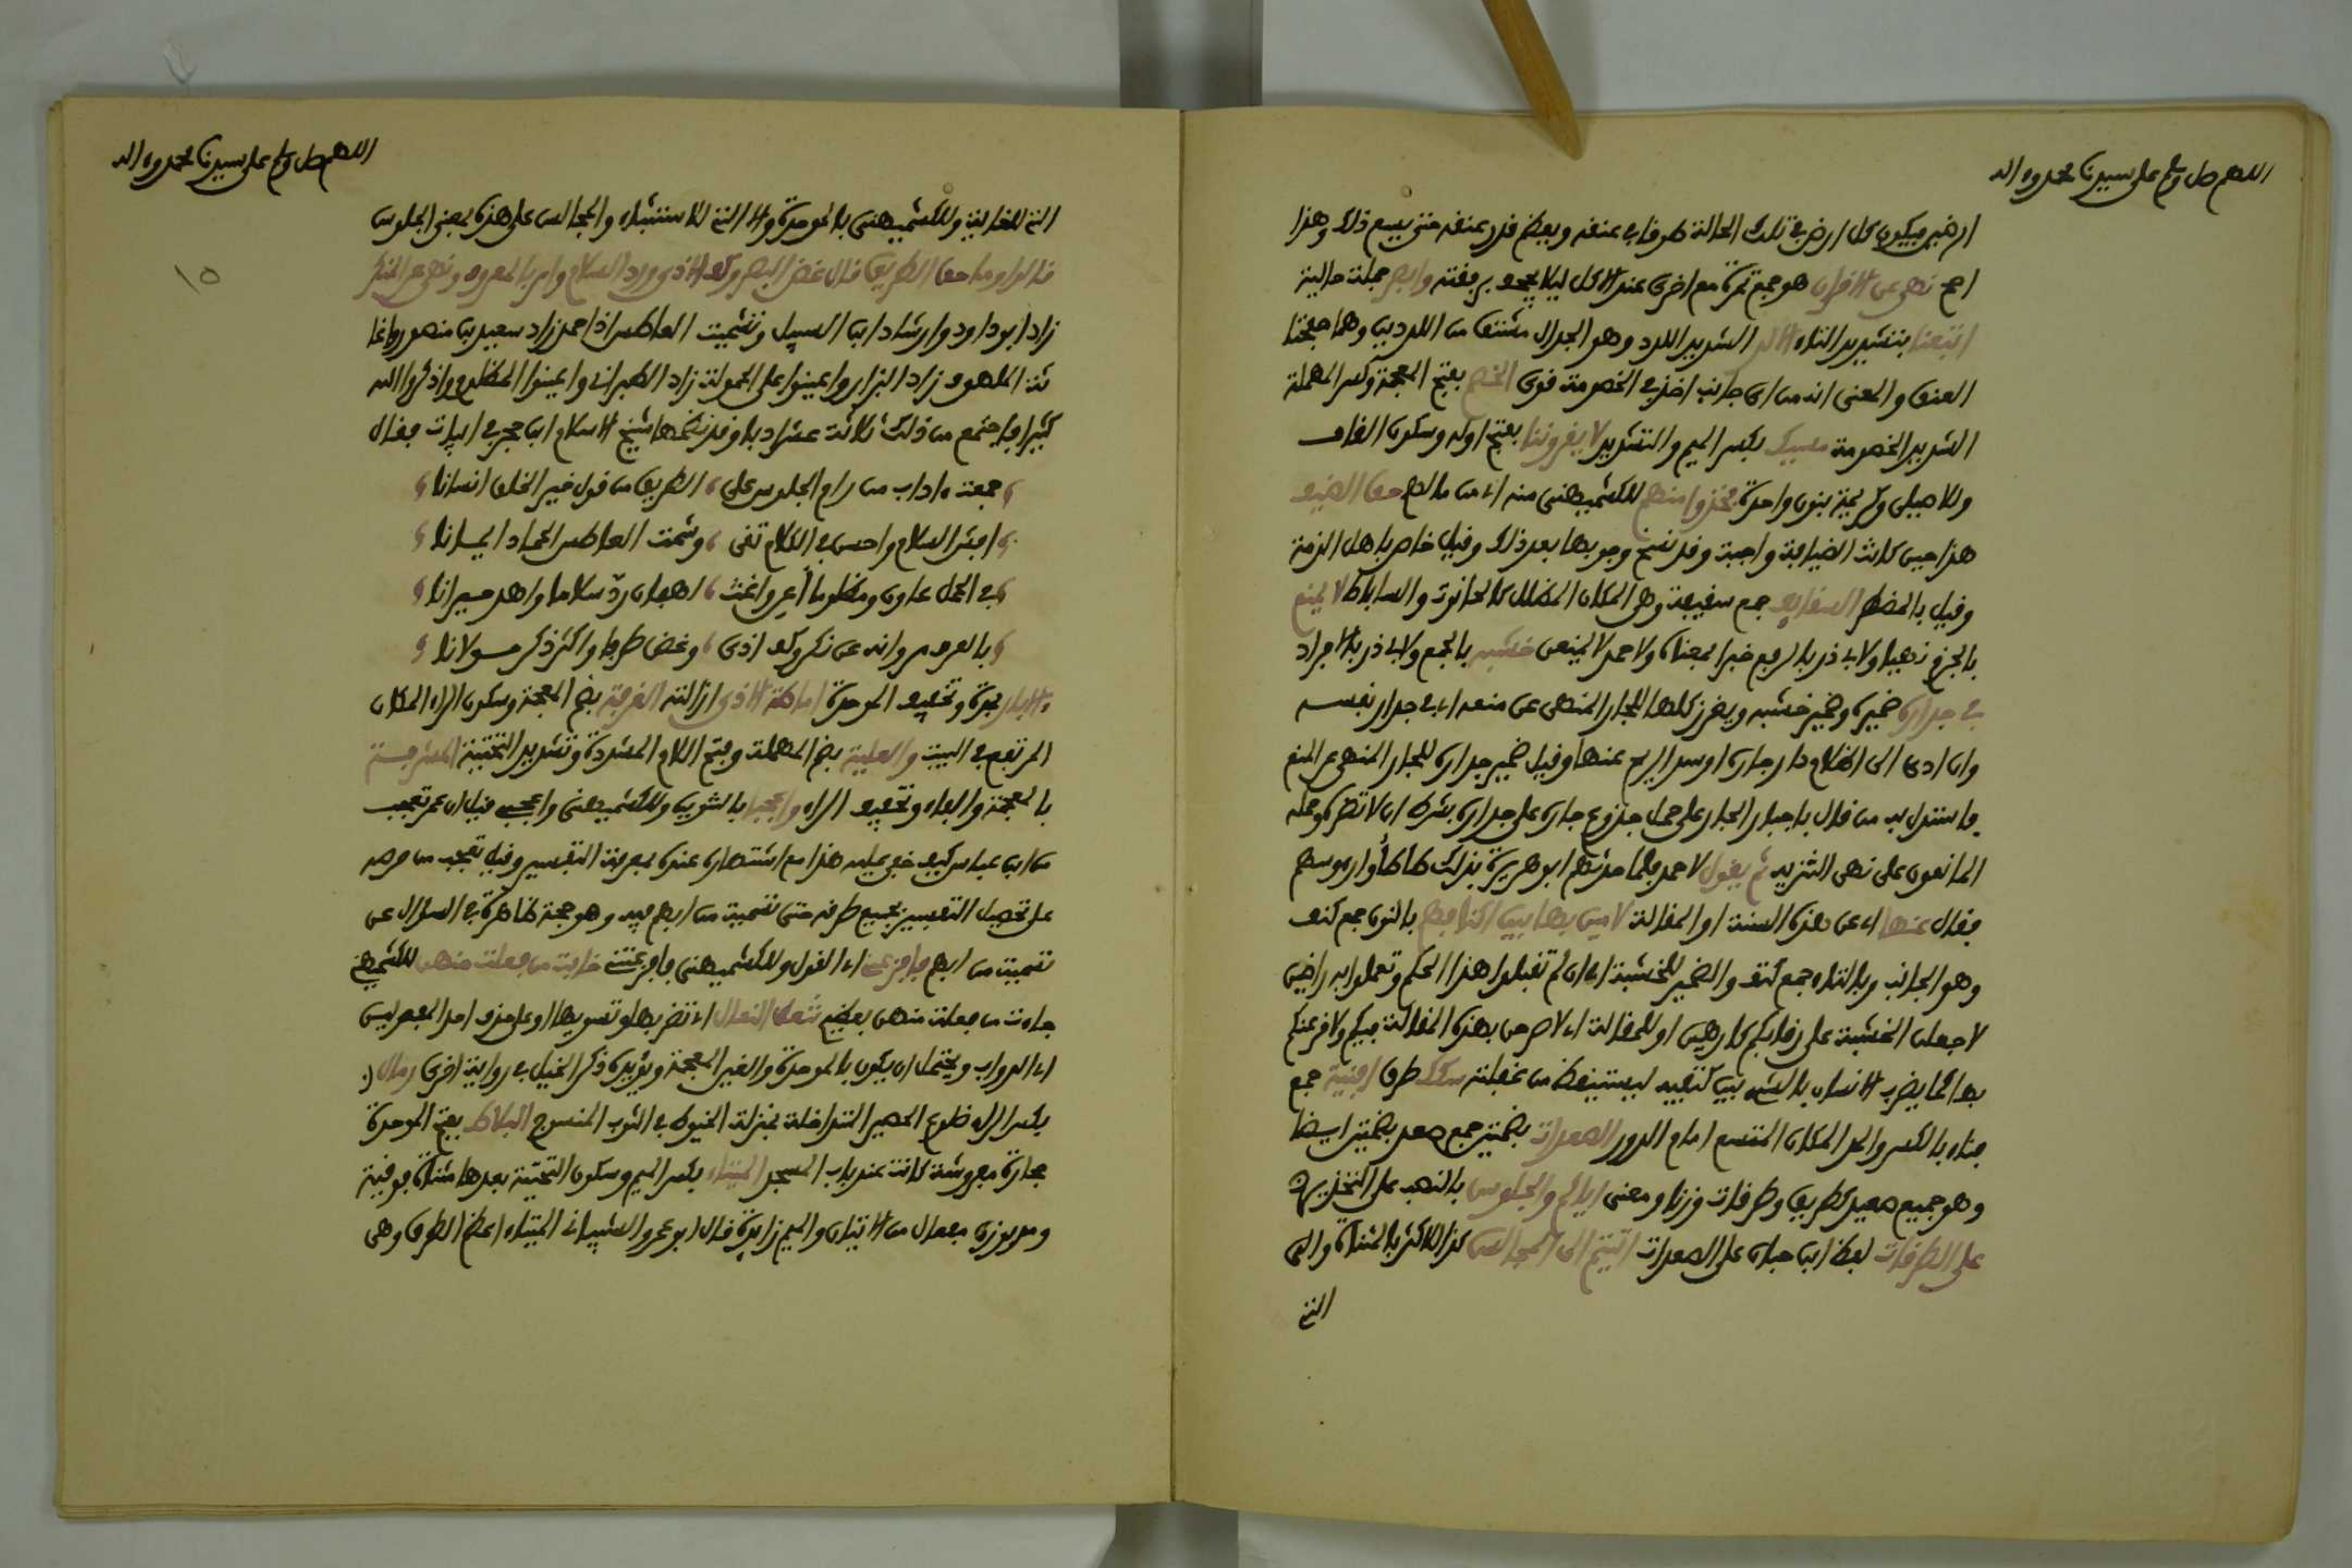 اللهم صل وسلم على سيدنا محمد وءاله
ارضين فيكون كل ارض في تلك الحالة طوقا في عنقه ويعظم قدر عنقه حتى يسع ذلك وهذا
اصح نهى عن الاقران هو جمع تمرة مع اخرى عند الاكل ليلا يجحف برفقته وابصر جملة حالية
اتبعنا بتشديد التاء الالد الشديد اللدد وهو الجدال مشتق من اللديدين وهما صفحتا
العنق والمعنى انه من اي جانب اخذ في الخصومة قوي الخصم بفتح المعجمة وكسر المهملة
الشديد الخصومة مسيك بكسر الميم والتشديد لا يقروننا بفتح اوله وسكون القاف
وللاصيلي وكريمة بنون واحدة فخذوا منهم للكشميهني منه اي من مالهم حق الضيف
هذا حين كانت الضيافة واجبة وقد نسخ وجوبها بعد ذلك وقيل خاص باهل الذمة
وقيل بالمضطر السقايف جمع سقيفة وهو المكان المظلل كالحانوت والساباط لا يمنع
بالجزم نهيا ولابي ذر بالرفع خبر بمعناه ولاحمد لا يمنعن خشبه بالجمع ولابي ذر بالافراد
في جداره ضميره وضمير خشبه ويغرز كلها للجار المنهى عن منعه اي في جدار نفسه
وان ادى الى اظلام دار جاره او سد الريح عنها وقيل ضمير جداره للجار المنهى عن المنع
فاستدل به من قال باجبار الجار على حمل جذوع جاره على جداره بشرط ان لا تضره وحمله
المانعون على نهي التنزيه ثم يقول لاحمد فلما حدثهم ابو هريرة بذلك طاطأوا رءوسهم
فقال عنها اي عن هذه السنة او المقالة لارمين بها بين اكنافكم بالنون جمع كنف
وهو الجانب وبالتاء جمع كتف والضمير للخشبة اي ان لم تقبلوا هذا الحكم وتعملوا به راضين
لاجعلن الخشبة على رقابكم كارهين او للمقالة اي لاصرخن بهذه المقالة فيكم ولاقرعنكم
بها كما يضرب الانسان بالشيء بين كتفيه ليستيقظ من غفلته سكك طرق افنية جمع
فناء بالكسر والمد المكان المتسع امام الدور الصعدات بضمتين جمع صعد بضمتين ايضا
وهو جمع صعيد كطريق وطرقات وزنا ومعنى اياكم والجلوس بالنصب على التحذير
على الطرقات لفظ ابن حبان على الصعدات اتيتم الى المجالس كذا للاكثر بالمثناة والى
التي
اللهم صل وسلم على سيدنا محمد وءاله
١٥
التي للغاية وللكشميهني بالموحدة والا التي للاستثناء والمجالس على هذه بمعنى الجلوس
قالوا وما حق الطريق قال غض البصر وكف الاذى ورد السلام وامر بالمعروف ونهى عن المنكر
زاد ابو داود وارشاد ابن السبيل وتشميت العاطس اذا حمد زاد سعيد بن منصور واغا
ثة الملهوف زاد البزار واعينوا على الحمولة زاد الطبراني واعينوا المظلوم واذكروا الله
كثيرا فاجتمع من ذلك ثلاثة عشر ادبا وقد نظمها شيخ الاسلام ابن حجر في ابيات فقال
جمعت ءاداب من رام الجلوس على الطريق من قول خير الخلق انسانا
افش السلام واحسن في الكلام تقى وشمت العاطس الحماد ايمانا
في الحمل عاون ومظلوما أعن واغث لهفان ردّ سلاما واهد حيرانا
بالعرف مر وانه عن نكر وكف اذى وغض طرفا واكثر ذكر مولانا
والابار بمدة وتخفيف الموحدة اماطة الاذى ازالته الغرفة بضم المعجمة وسكون الراء المكان
المرتفع في البيت والعلية بضم المهملة وفتح اللام المشددة وتشديد التحتية المشرفة
بالمعجمة والفاء وتخفيف الراء واعجبا بالتنوين وللكشميهني واعجبي قيل ان عمر تعجب
من ابن عباس كيف خفي عليه هذا مع اشتهاره عنده بمعرفة التفسير وقيل تعجب من حرصه
على تحصيل التفسير بجميع طرقه حتى تسمية من ابهم فيه وهو حجة ظاهرة في السؤال عن
تسمية من ابهم فافزعني اي القول وللكشميهني فافزعتني خابت من فعلت منهن للكشميهني
جاءت من فعلت منهن بعظيم تنعل النعال اي تضربها وتسويها او على حذف احد المفعولين
اي الدواب ويحتمل ان يكون بالموحدة والغين المعجمة ويؤيده ذكر الخيل في رواية اخرى رمال
بكسر الراء ضلوع الحصير المتداخلة بمنزلة الخيوط في الثوب المنسوج البلاط بفتح الموحدة
حجارة مفروشة كانت عند باب المسجد الميتاء بكسر الميم وسكون التحتية بعدها مثناة فوقية
ومد بوزن مفعال من الاتيان والميم زايدة قال ابو عمرو الشيباني الميتاء اعظم الطرق وهي